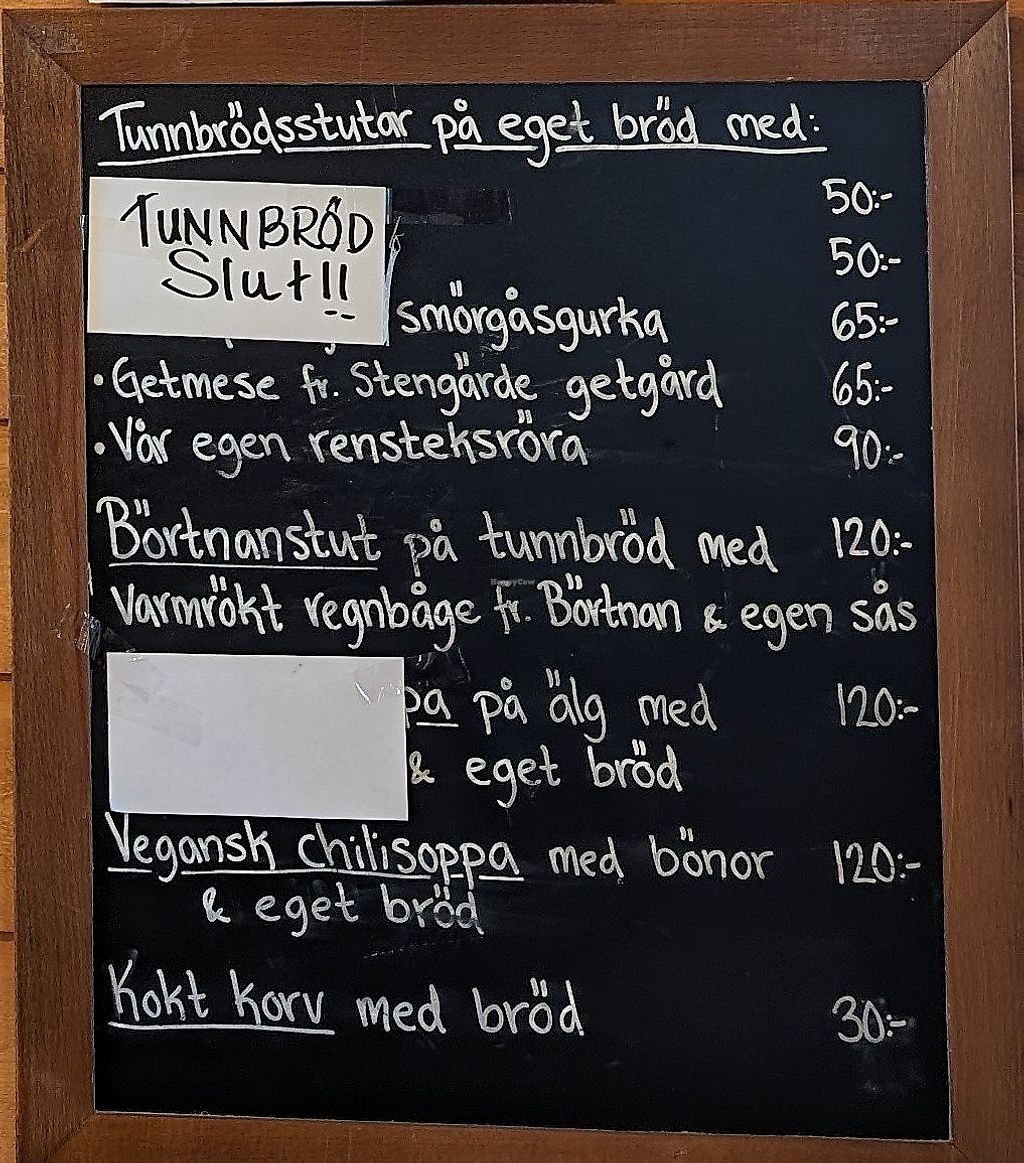 Tunnbrödsstutar på eget bröd med:
TUNNBRÖD
Slut!!
50:-
50:-
smörgåsgurka 65:-
• Getmese fr. Stengärde getgård 65:-
• Vår egen rensteksröra 90:-
Börtnanstut på tunnbröd med 120:-
Varmrökt regnbåge fr. Börtnan & egen sås
HappyCow
pa på älg med 120:-
& eget bröd
Vegansk chilisoppa med bönor 120:-
& eget bröd
Kokt korv med bröd 30:-